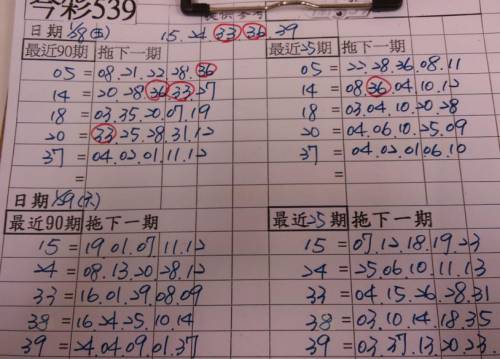 今彩539 提供參考
日期 1/28(五) 15.24.33.36.39
最近90期 拖下一期
05 = 08.21.22.28.36
14 = 20.28.36.33.27
18 = 03.35.20.07.19
20 = 33.25.28.31.12
37 = 04.02.01.11.12
=
最近25期 拖下一期
05 = 22.28.36.08.11
14 = 08.36.04.10.12
18 = 03.04.10.20.28
20 = 04.06.10.25.09
37 = 04.02.01.06.10
=
日期 1/29(六)
最近90期 拖下一期
15 = 19.01.07.11.12
24 = 08.13.20.28.12
33 = 16.01.29.08.09
38 = 16.24.25.10.14
39 = 24.04.09.01.37
最近25期 拖下一期
15 = 07.12.18.19.23
24 = 25.06.10.11.13
33 = 04.15.26.28.31
38 = 03.10.14.18.35
39 = 03.37.13.20.23